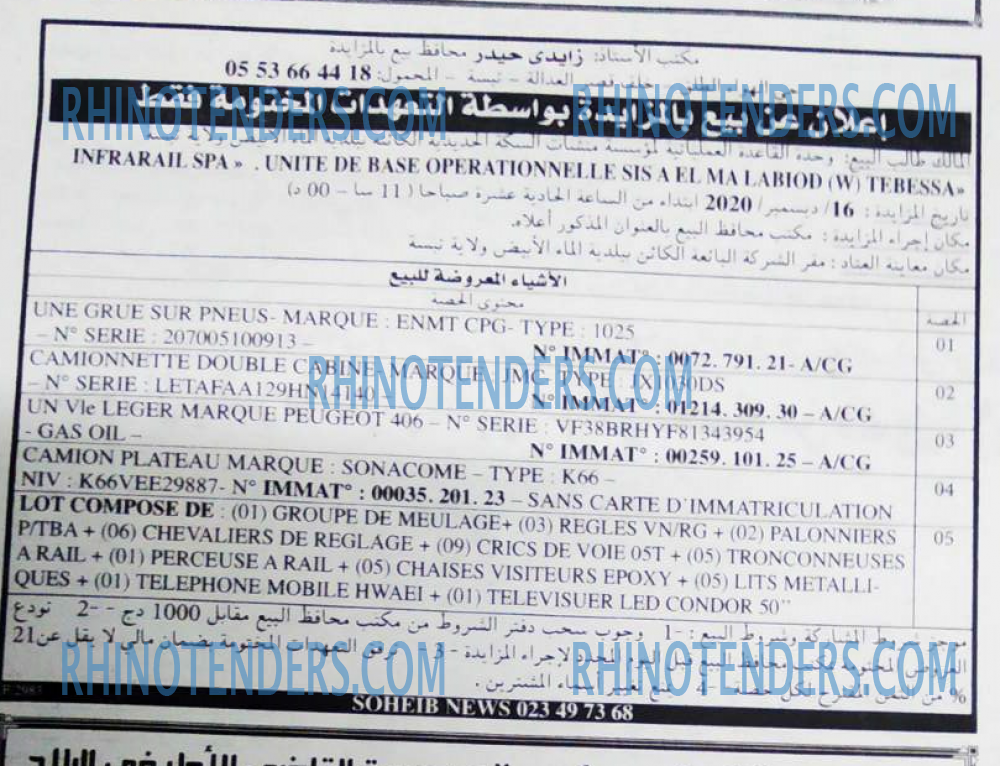 مكتب الأستاذ: زايدى حيدر محافظ بيع بالمزايدة
حي الهواء الطلق - خلف قصر العدالة - تبسة - المحمول: 18 44 66 53 05
إعلان عن بيع بالمزايدة بواسطة التعهدات المختومة فقط
RHINOTENDERS.COM RHINOTENDERS.COM
المالك طالب البيع: وحدة القاعدة العملياتية لمؤسسة منشآت السكة الحديدية الكائنة ببلدية الماء الأبيض ولاية تبسة
INFRARAIL SPA» . UNITE DE BASE OPERATIONNELLE SIS A EL MA LABIOD (W) TEBESSA»
تاريخ المزايدة : 16/ ديسمبر/ 2020 ابتداء من الساعة الحادية عشرة صباحا ( 11 سا - 00 د)
مكان إجراء المزايدة : مكتب محافظ البيع بالعنوان المذكور أعلاه.
مكان معاينة العتاد : مقر الشركة البائعة الكائن ببلدية الماء الأبيض ولاية تبسة
الأشياء المعروضة للبيع
محتوى الحصة
الحصة
UNE GRUE SUR PNEUS- MARQUE : ENMT CPG- TYPE : 1025
– N° SERIE : 207005100913 – N° IMMAT° : 0072. 791. 21- A/CG
01
CAMIONNETTE DOUBLE CABINE, MARQUE : JMC, TYPE : JX1030DS
– N° SERIE : LETAFAA129HN 4140 – N° IMMAT° : 01214. 309. 30 – A/CG
02
RHINOTENDERS.COM
UN Vle LEGER MARQUE PEUGEOT 406 – N° SERIE : VF38BRHYF81343954
- GAS OIL – N° IMMAT° : 00259. 101. 25 – A/CG
03
CAMION PLATEAU MARQUE : SONACOME – TYPE : K66 –
NIV : K66VEE29887- N° IMMAT° : 00035. 201. 23 – SANS CARTE D'IMMATRICULATION
04
LOT COMPOSE DE : (01) GROUPE DE MEULAGE+ (03) REGLES VN/RG + (02) PALONNIERS
P/TBA + (06) CHEVALIERS DE REGLAGE + (09) CRICS DE VOIE 05T + (05) TRONCONNEUSES
A RAIL + (01) PERCEUSE A RAIL + (05) CHAISES VISITEURS EPOXY + (05) LITS METALLI-
QUES + (01) TELEPHONE MOBILE HWAEI + (01) TELEVISUER LED CONDOR 50"
05
موجز شروط المشاركة وشروط البيع : -1 وجوب سحب دفتر الشروط من مكتب محافظ البيع مقابل 1000 دج - -2 تودع
العروض المختومة بمكتب محافظ البيع قبل اليوم المحدد لإجراء المزايدة - 3 - ترفق التعهدات المختومة بضمان مالي لا يقل عن 21
% من الثمن المقترح لكل حصة - 4 - تمنع تغيير أسماء المشترين .
RHINOTENDERS.COM RHINOTENDERS.COM
SOHEIB NEWS 023 49 73 68